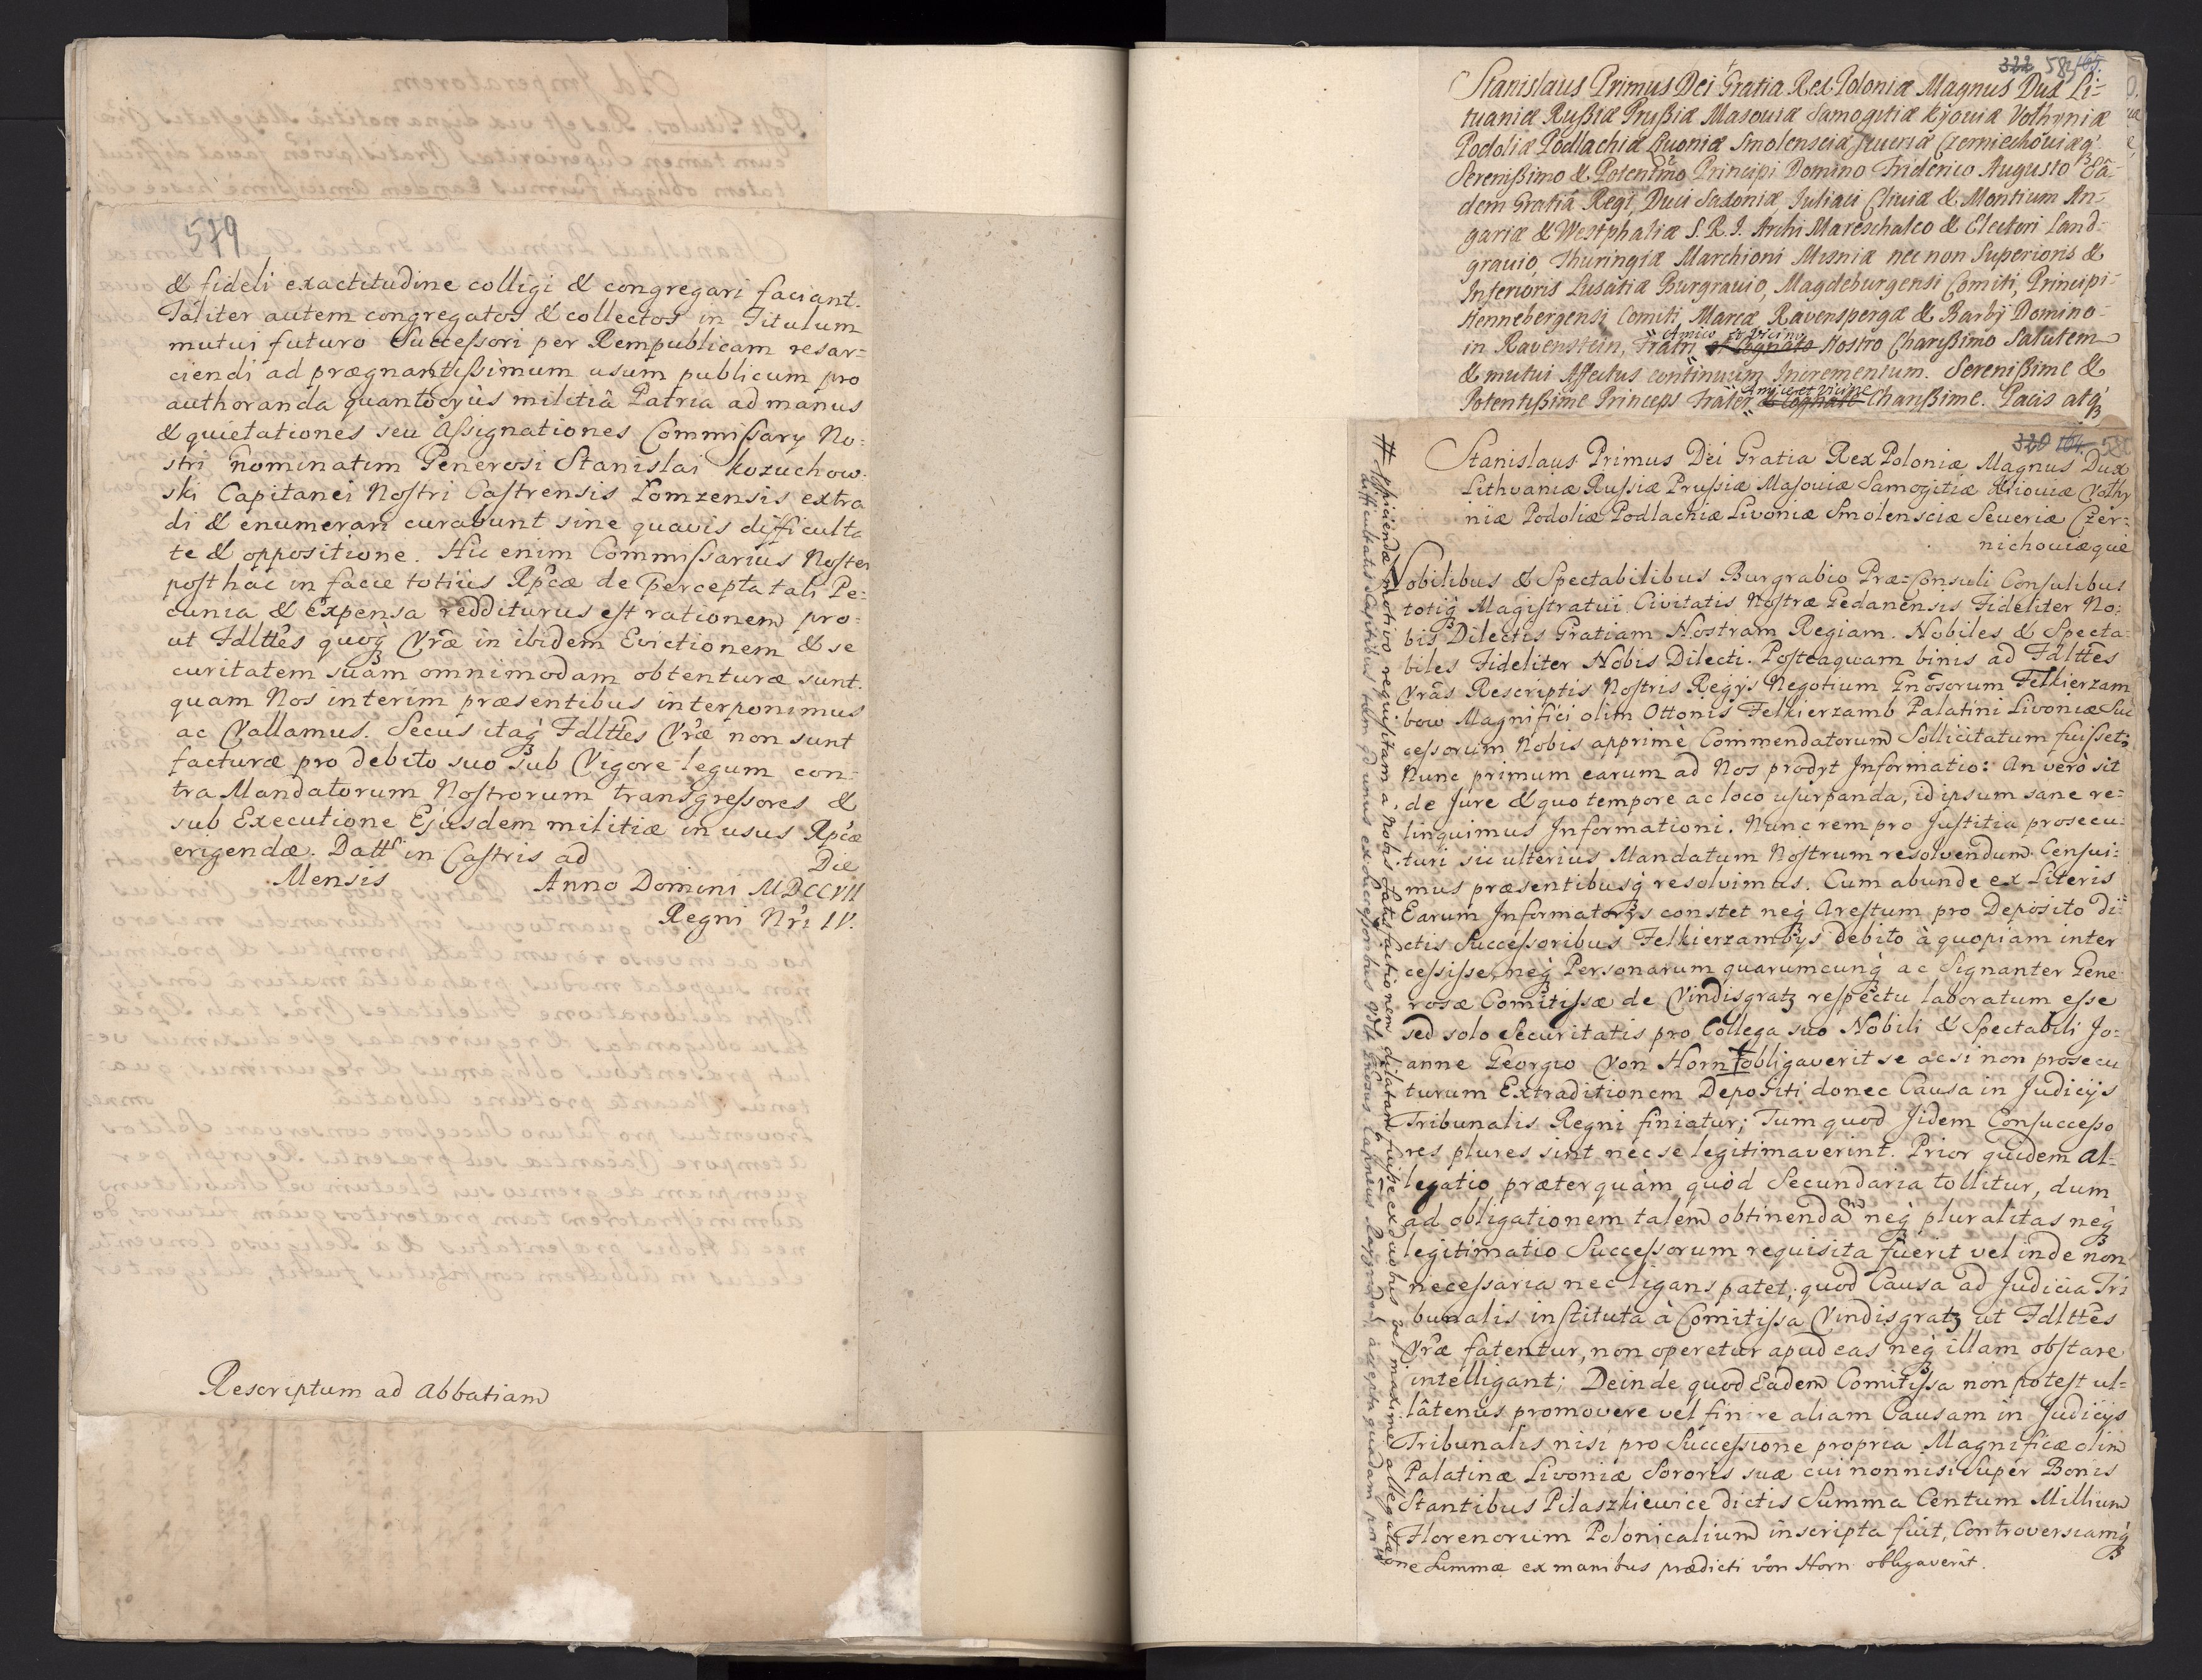 579
& fideli exactitudine colligi & congregari faciant.
Taliter autem congregatos & collectos in Titulum
mutui futuro Successori per Rempublicam resar=
ciendi ad prægnantissimum usum publicum pro
authoranda quantocyùs militiâ Patria ad manus
& quietationes seu Assignationes Commissary No=
stri nominatim Generosi Stanislai Kozuchow=
ski Capitanei Nostri Castrensis Lomzensis extra
di & enumerari curabunt sine quavis difficulta
te & oppositione. Hic enim Commissarius Noster
post hac in facie totius Rpcæ de percepta tali Pe=
cunia & Expensa redditurus est rationem pro=
ut Fdlttēs quoq Vræ in ibidem Evictionem & se
curitatem suam omnimodam obtenturæ sunt.
quam Nos interim præsentibus interponimus
ac Vallamus. Secus itaq Fdlttēs Vræ non sunt
facturæ pro debito suo sub Vigore legum con=
tra Mandatorum Nostrorum transgressores &
sub Executione Ejusdem militiæ in usus Rpcæ
erigendæ. Datt in Castris ad Die
Mensis Anno Domini MDCCVII
Regni Nri IV.
Rescriptum ad Abbatiam
322 581
Stanislaus Primus Dei Gratia Rex Poloniæ Magnus Dux Li=
tuaniæ Rußiæ Prußiæ Masouiæ Samogitiæ Kijouiæ Volhyniæ
Podoliæ Podlachiæ Liuoniæ Smolensciæ Seueriæ Czerniechouiæq
Serenißimo & Potentmo Principi Domino Friderico Augusto Eâ=
dem Gratiâ Regi, Duci Saxoniæ Juliaci Cliuiæ & Montium An=
gariæ & Westphaliæ S. R. I. Archi Mareschalco & Electori Land=
grauio Thuringiæ Marchioni Misniæ nec non Superioris &
Inferioris Lusatiæ Burgrauio, Magdeburgensi Comiti, Principi=
Hennebergensi Comiti Marcæ Ravenspergæ & Barbÿ Domino=
Amico et Vicino
in Ravenstein, Fratri et Cognato Nostro Charißimo Salutem
& mutui Affectus continuum Incrementum. Serenißime &
Amice et Vicine
Potentißime Princeps Frater et Cognate Charißime. Pacis atq
320 164 580
Stanislaus Primus Dei Gratia Rex Poloniæ Magnus Dux
Lithvaniæ Russiæ Prussiæ Masouiæ Samogitiæ Kiiouiæ Volhy
niæ Podoliæ Podlachiæ Livoniæ Smolensciæ Seueriæ Czer=
nichouiæque
Nobilibus & Spectabilibus Burgrabio Præ=Consuli Consulibus
totiq Magistratui Civitatis Nostræ Gedanensis Fideliter No=
bis Dilectis Gratiam Nostram Regiam. Nobiles & Specta=
biles Fideliter Nobis Dilecti. Posteaquam binis ad Fdlttēs
Vras Rescriptis Nostris Regÿs Negotium Gnosorum Felkierzam
bow Magnifici olim Ottonis Felkierzamb Palatini Livoniæ Suc
cessorum Nobis apprimè Commendatorum Sollicitatum fuisset;
Nunc primum earum ad Nos prodÿt Informatio: An verò sit
de Jure & quo tempore ac loco usurpanda, id ipsum sane re=
linquimus Informationi. Nunc rem pro Justitia prosecu=
turi sic ulterius Mandatum Nostrum resolvendum Censui=
mus præsentibusq resolvimus. Cum abunde ex Literis
Earum Informatorÿs constet neq Arestum pro Deposito di=
ctis Successoribus Felkierzambÿs debito à quopiam inter
cessisse, neq Personarum quarumcunq ac Signanter Gene
rosæ Comitissæ de Vindisgratz respectu laboratum esse
sed solo Securitatis pro Collega suo Nobili & Spectabili Jo=
anne Georgio Von Horn obligaverit se ac si non prosecu
turum Extraditionem Depositi donec Causa in Judicÿs
Tribunalis Regni finiatur; Tum quod Jidem Consuccesso
res plures sint nec se legitimaverint. Prior quidem al=
legatio præterquàm quòd Secundaria tollitur, dum
ad obligationem talem obtinendam neq pluralitas neq
legitimatio Successorum requisita fuerit vel inde non
necessaria nec ligans patet, quod Causa ad Judicia Tri
bunalis instituta à Comitissa Vindisgratz ut Fdlttēs
Vræ fatentur, non operetur apud eas neq illam obstare
intelligant; Deinde quod Eadem Comitissa non potest ul=
latenus promovere vel finire aliam Causam in Judicÿs
Tribunalis nisi pro Successione propria Magnificæ olim
Palatinæ Livoniæ Sororis suæ cui nonnisi super Bonis
Stantibus Pilaszkiewice dictis Summa Centum Millium
Florenorum Polonicalium inscripta fuit, Controversiamq
ne Summæ ex manibus prædicti von Horn obligaverit.
# motivo requisitam a Nobis satisfactionem dilatam fuisse ex duobus vel maxime allegatæ
difficultatis